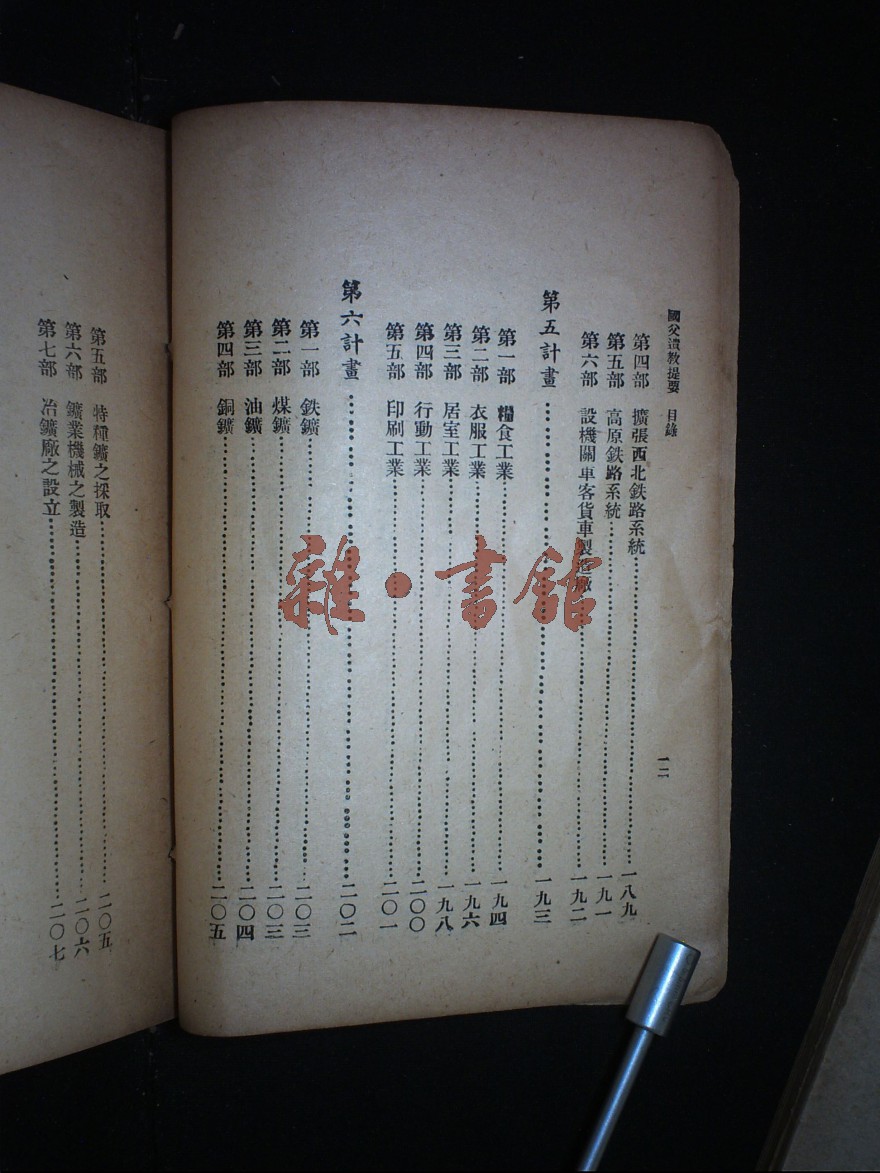 國父遺教提要 目錄
一二
第四部 擴張西北鉄路系統…………一八九
第五部 高原鉄路系統…………一九一
第六部 設機關車客貨車製造廠…………一九二
第五計畫…………一九三
第一部 糧食工業…………一九四
第二部 衣服工業…………一九六
第三部 居室工業…………一九八
第四部 行動工業…………二〇〇
第五部 印刷工業…………二〇一
第六計畫…………二〇二
第一部 鉄鑛…………二〇三
第二部 煤鑛…………二〇三
第三部 油鑛…………二〇四
第四部 銅鑛…………二〇五
第五部 特種鑛之採取…………二〇五
第六部 鑛業機械之製造…………二〇六
第七部 冶鑛廠之設立…………二〇七
雜·書館